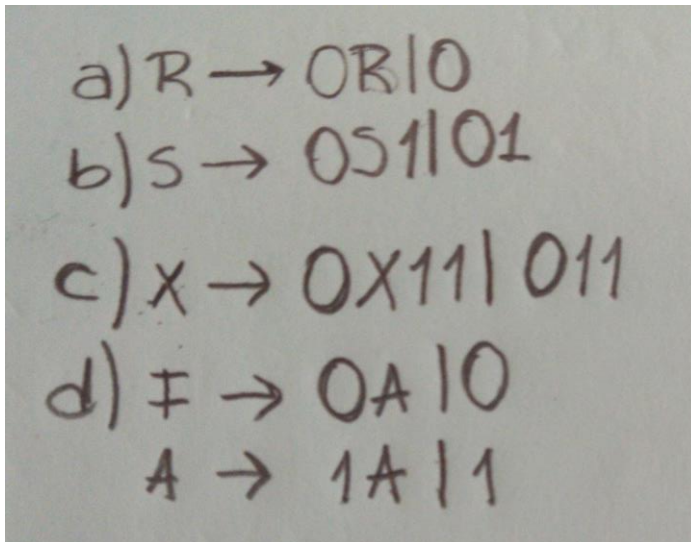 a) R → 0R|0
b) S → 0S1|01
c) X → 0X11|011
d) I → 0A|0
A → 1A|1